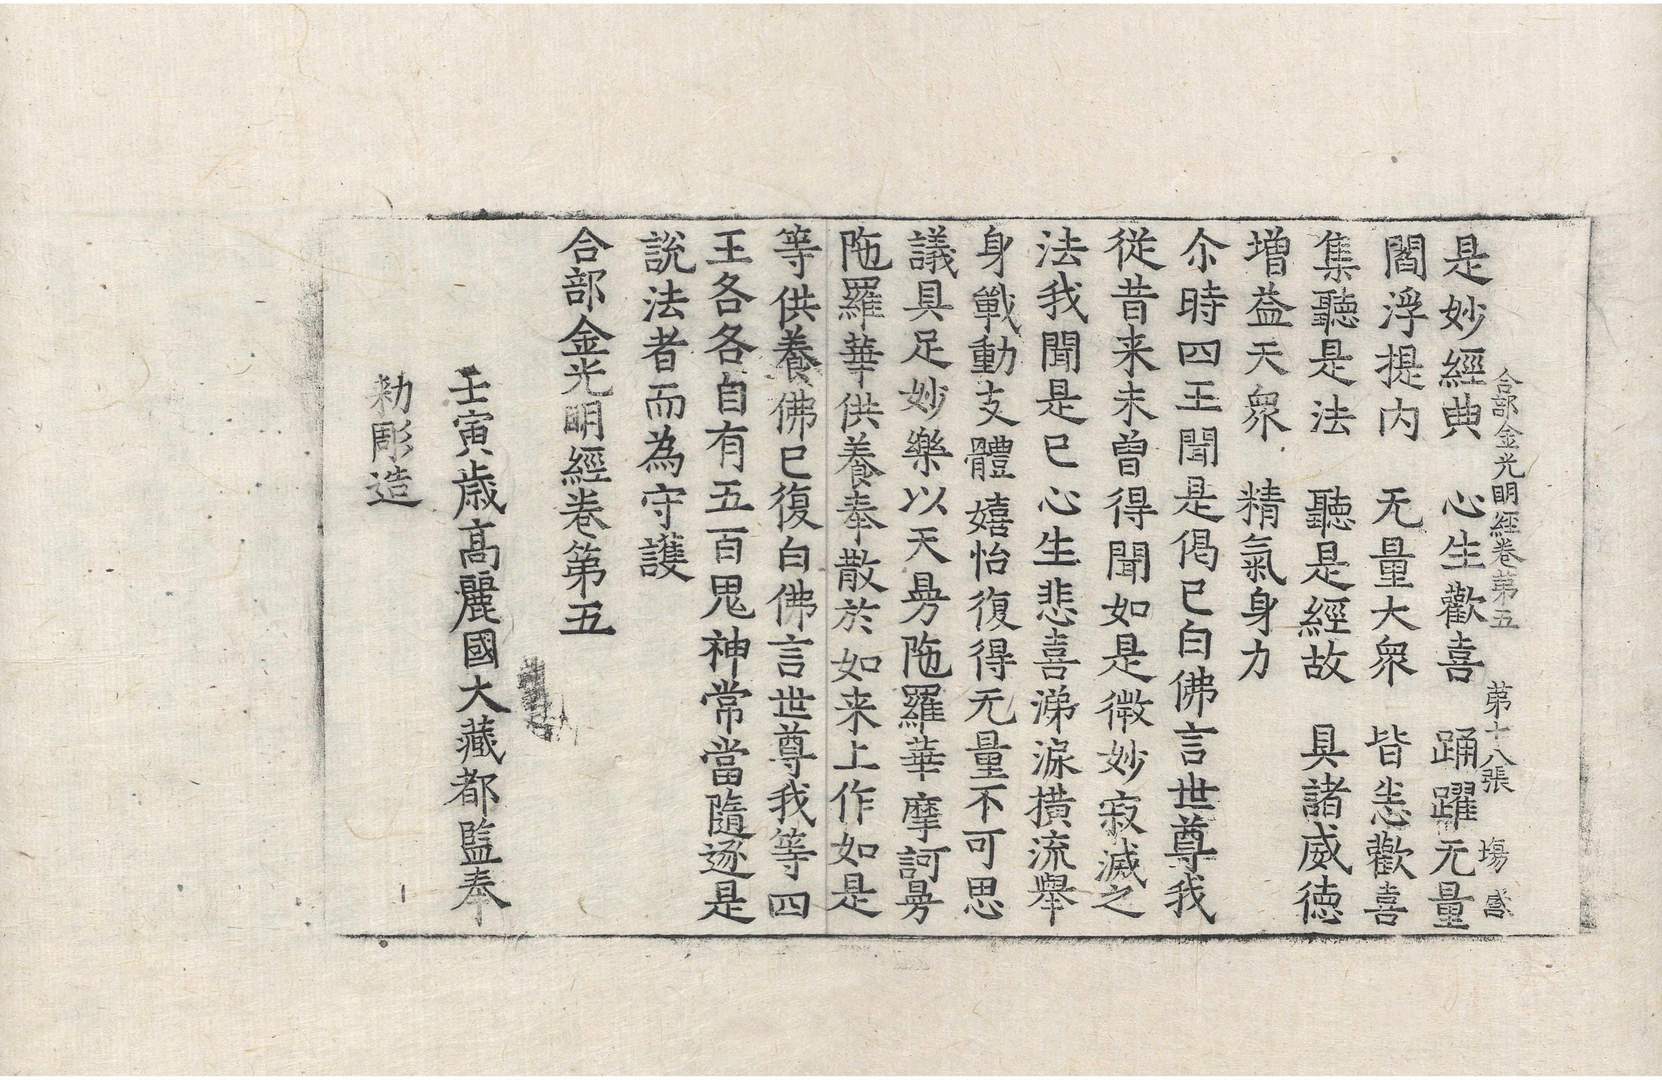 合部金光明經卷第五　第十八張　場
是妙經典　心生歡喜　踊躍无量
閻浮提内　无量大衆　皆悉歡喜
集聽是法　聽是經故　具諸威德
增益天衆　精氣身力
尒時四王聞是偈已白佛言世尊我
從昔来未曾得聞如是微妙寂滅之
法我聞是已心生悲喜涕淚横流舉
身戰動支體嬉怡復得无量不可思
議具足妙樂以天曼陁羅華摩訶曼
陁羅華供養奉散於如来上作如是
等供養佛已復白佛言世尊我等四
王各各自有五百鬼神常當隨逐是
說法者而為守護
合部金光明經卷第五
壬寅歲高麗國大藏都監奉
勑彫造